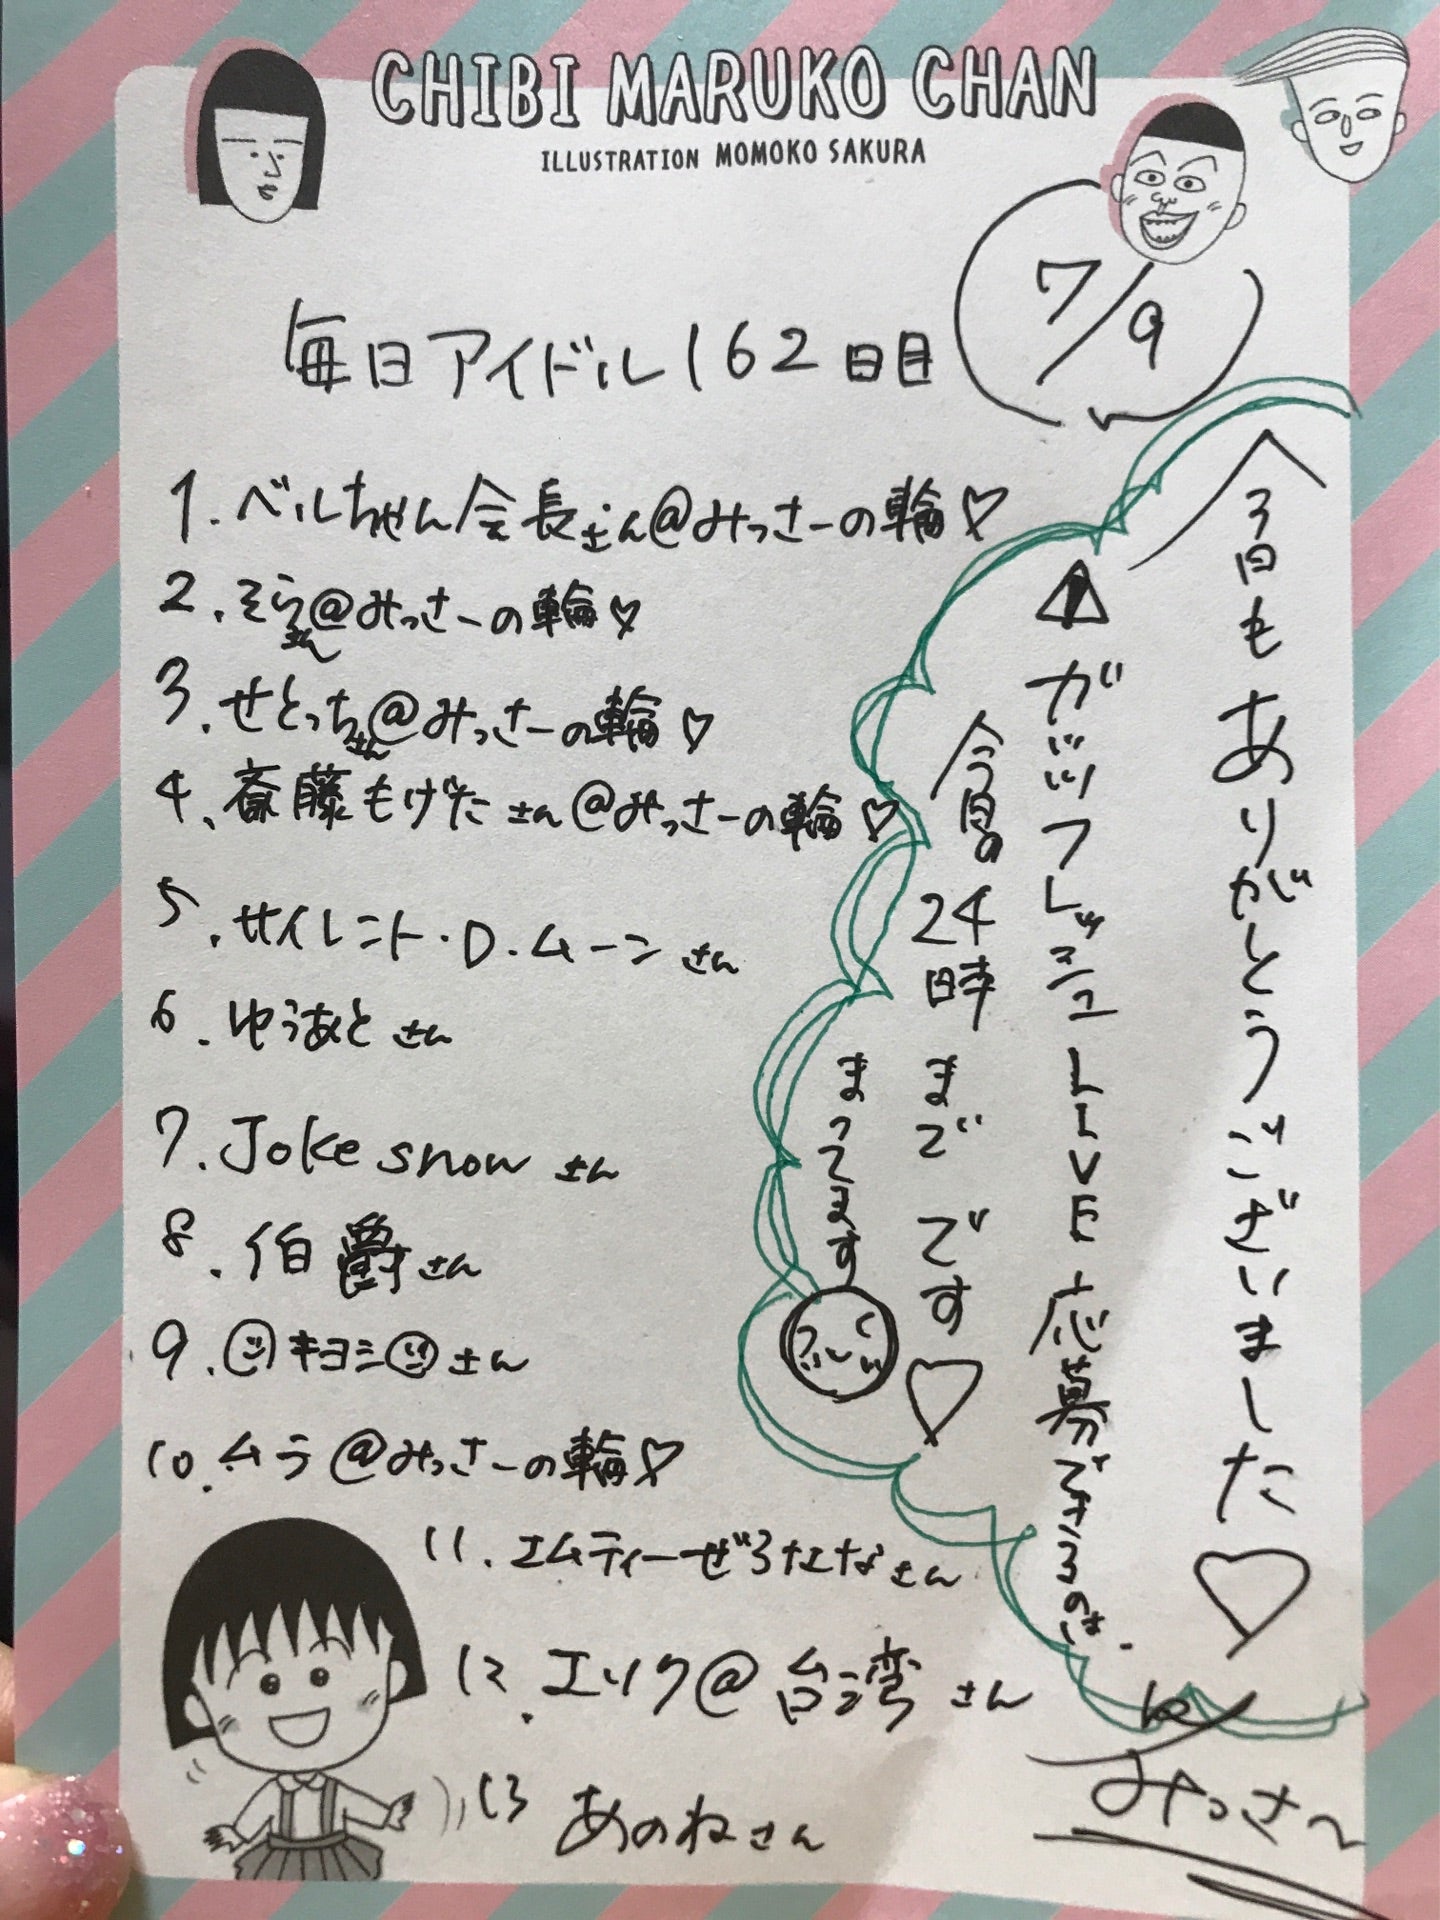 CHIBI MARUKO CHAN
ILLUSTRATION MOMOKO SAKURA
7/9
毎日アイドル162日目
1.ベルちゃん会長さん@みっさーの輪♡
2.そらさん@みっさーの輪♡
3.せとっちさん@みっさーの輪♡
4.斎藤もげたさん@みっさーの輪♡
5.サイレント・D.ムーンさん
6.ゆうあとさん
7.Joke snowさん
8.伯爵さん
9.キヨシさん
10.ムラ@みっさーの輪♡
11.エムティーぜろさん
12.エリク@台湾さん
13 あのねさん
今日もありがとうございました♡
⚠ガッツフレッシュLIVE応募できるのは
今日の24時までです♡
まってます
みっさ〜